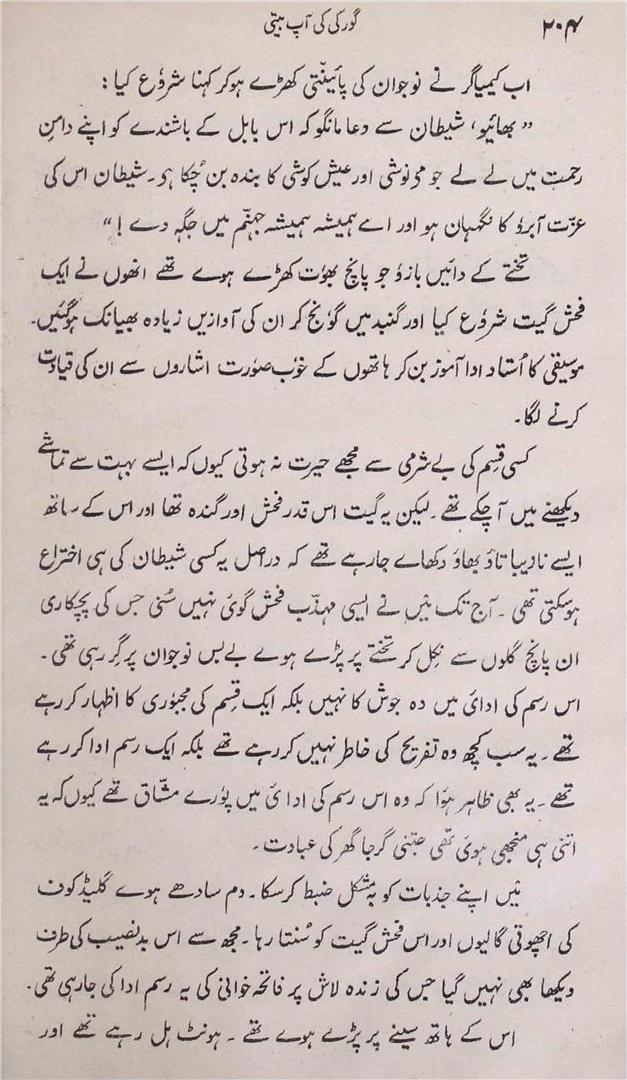 ۲۰۴
گورکی کی آپ بیتی
اب کیمیاگر نے نوجوان کی پائینتی کھڑے ہوکر کہنا شروع کیا :
” بھائیو، شیطان سے دعا مانگو کہ اس بابل کے باشندے کو اپنے دامنِ
رحمت میں لے لے جو مےنوشی اور عیش کوشی کا بندہ بن چُکا ہے۔ شیطان اس کی
عزّت آبرو کا نگہبان ہو اور اے ہمیشہ ہمیشہ جہنّم میں جگہ دے ! “
تختے کے دائیں بازو جو پانچ بھوٗت کھڑے ہوے تھے انھوں نے ایک
فحش گیت شروع کیا اور گنبد میں گونج کر ان کی آوازیں زیادہ بھیانک ہوگئیں۔
موسیقی کا اُستاد ادا آموز بن کر ہاتھوں کے خوٗب صورت اشاروں سے ان کی قیادت
کرنے لگا۔
کسی قسم کی بے شرمی سے مجھے حیرت نہ ہوتی کیوں کہ ایسے بہت سے تماشے
دیکھنے میں آچکے تھے۔ لیکن یہ گیت اس قدر فحش اور گندہ تھا اور اس کے ساتھ
ایسے نازیبا تاؤ بھاؤ دکھاے جارہے تھے کہ دراصل یہ کسی شیطان کی ہی اختراع
ہوسکتی تھی۔ آج تک میں نے ایسی مہذّب فحش گوئ نہیں سُنی جس کی پچکاری
ان پانچ گلوں سے نِکل کر تختے پر پڑے ہوے بے بس نوجوان پر گِر رہی تھی۔
اس رسم کی ادائ میں وہ جوش کا نہیں بلکہ ایک قسم کی مجبوٗری کا اظہار کر رہے
تھے۔ یہ سب کچھ وہ تفریح کی خاطر نہیں کر رہے تھے بلکہ ایک رسم ادا کر رہے
تھے۔ یہ بھی ظاہر ہؤا کہ وہ اس رسم کی ادائ میں پوٗرے مشّاق تھے کیوں کہ یہ
اتنی ہی منجھی ہوئ تھی جتنی گرجا گھر کی عبادت۔
میں اپنے جذبات کو بہ مشکل ضبط کرسکا۔ دم سادھے ہوے گلیڈکوف
کی اچھوتی گالیوں اور اس فحش گیت کو سُنتا رہا۔ مجھ سے اس بدنصیب کی طرف
دیکھا بھی نہیں گیا جس کی زندہ لاش پر فاتحہ خوانی کی یہ رسم ادا کی جارہی تھی۔
اس کے ہاتھ سینے پر پڑے ہوے تھے۔ ہونٹ ہل رہے تھے اور